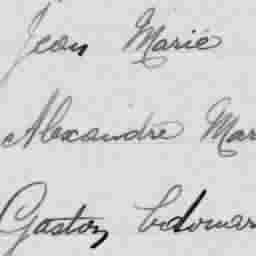 Jean Marie
Alexandre Mar
Gaston Edouar